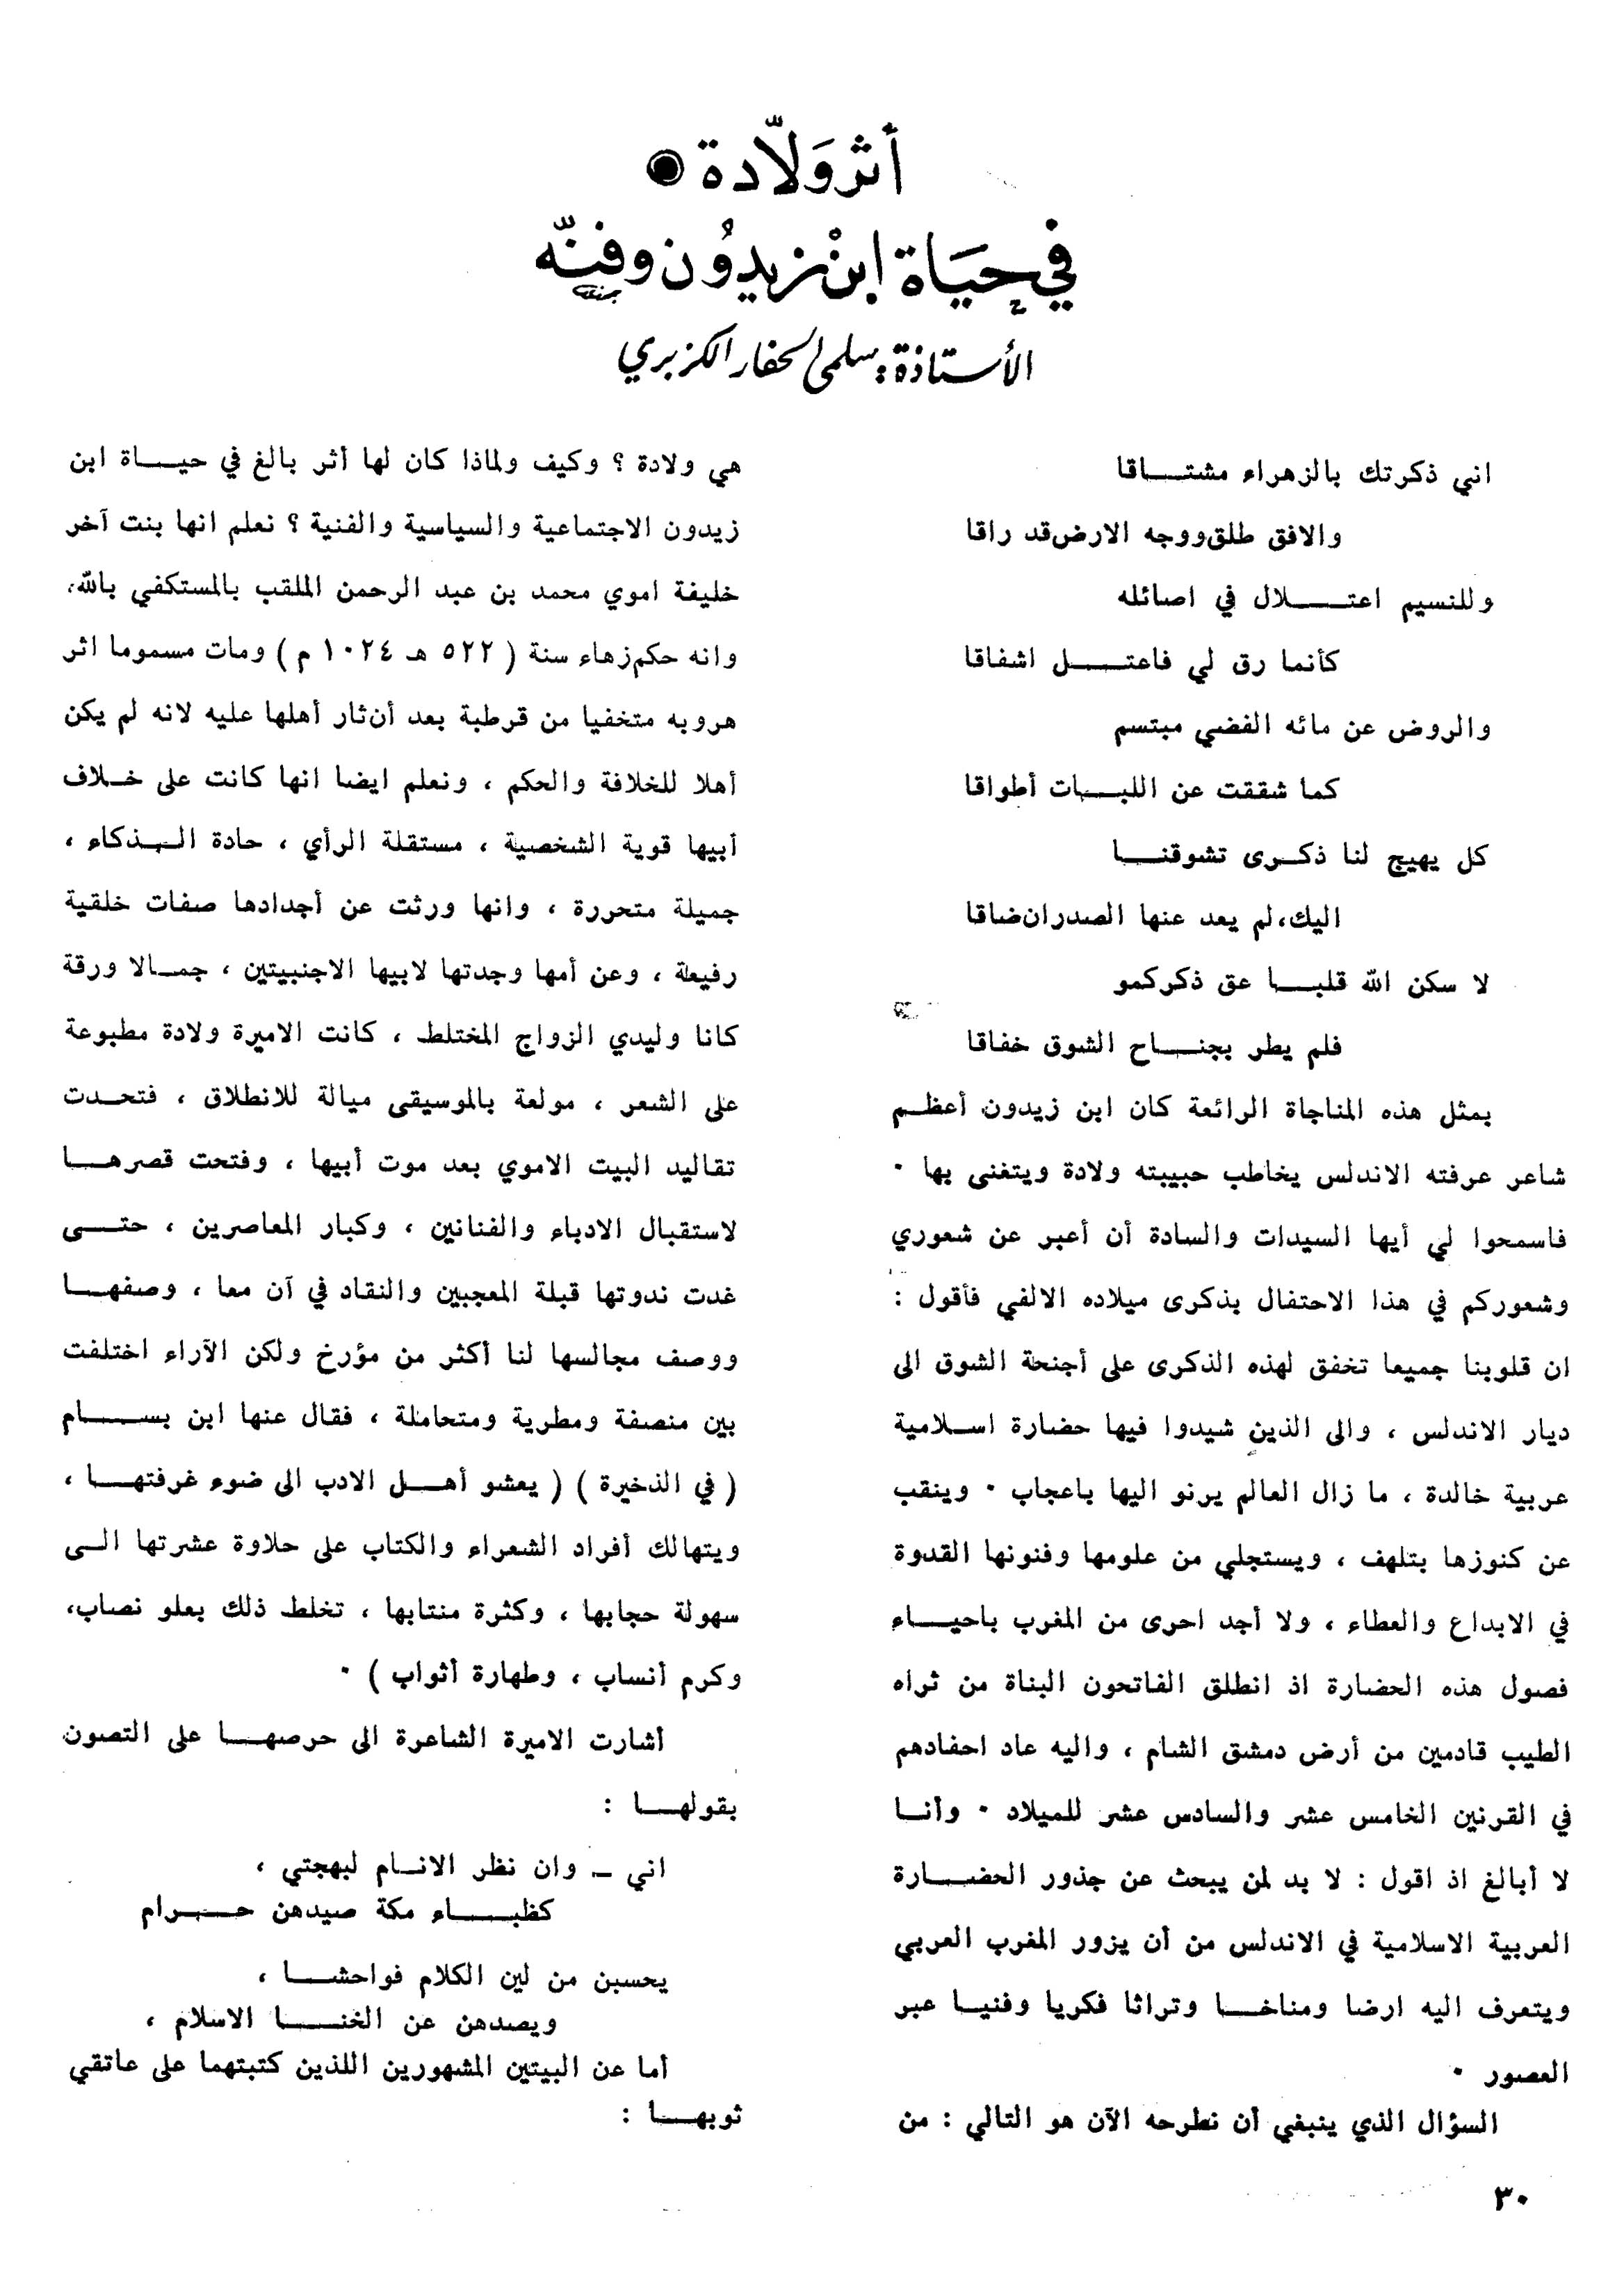 أثر ولّادة
في حيَاة ابنْ زيدوُن وفنّه
الأستاذة: سلمى الحفار الكزبري
اني ذكرتك بالزهراء مشتـــاقا
والافق طلق ووجه الارض قد راقا
وللنسيم اعتـــــلال في اصائله
كأنما رق لي فاعتـــــل اشفاقا
والروض عن مائه الفضي مبتسم
كما شققت عن اللبـــات أطواقا
كل يهيج لنا ذكــرى تشوقنـــا
اليك، لم يعد عنها الصدران ضاقا
لا سكن الله قلبـــا عق ذكركمو
فلم يطر بجنـــاح الشوق خفاقا
بمثل هذه المناجاة الرائعة كان ابن زيدون أعظـم
شاعر عرفته الاندلس يخاطب حبيبته ولادة ويتغنى بها ٠
فاسمحوا لي أيها السيدات والسادة أن أعبر عن شعوري
وشعوركم في هذا الاحتفال بذكرى ميلاده الالفي فأقول :
ان قلوبنا جميعا تخفق لهذه الذكرى على أجنحة الشوق الى
ديار الاندلس ، والى الذين شيدوا فيها حضارة اسـلامية
عربية خالدة ، ما زال العالم يرنو اليها باعجاب ٠ وينقب
عن كنوزها بتلهف ، ويستجلي من علومها وفنونها القدوة
في الابداع والعطاء ، ولا أجد احرى من المغرب باحيـــاء
فصول هذه الحضارة اذ انطلق الفاتحون البناة من ثراه
الطيب قادمين من أرض دمشق الشام ، واليه عاد احفادهم
في القرنين الخامس عشر والسادس عشر للميلاد ٠ وأنـا
لا أبالغ اذ اقول : لا بد لمن يبحث عن جذور الحضـــارة
العربية الاسلامية في الاندلس من أن يزور المغرب العربي
ويتعرف اليه ارضا ومناخـــا وتراثا فكريا وفنيـا عبر
العصور ٠
السؤال الذي ينبغي أن نطرحه الآن هو التالي : من
هي ولادة ؟ وكيف ولماذا كان لها أثر بالغ في حيـــاة ابن
زيدون الاجتماعية والسياسية والفنية ؟ نعلم انها بنت آخر
خليفة اموي محمد بن عبد الرحمن الملقب بالمستكفي بالله،
وانه حكم زهاء سنة ( ٥٢٢ هـ ١٠٢٤ م ) ومات مسموما اثر
هروبه متخفيا من قرطبة بعد أن ثار أهلها عليه لانه لم يكن
أهلا للخلافة والحكم ، ونعلم ايضا انها كانت على خـلاف
أبيها قوية الشخصية ، مستقلة الرأي ، حادة الـــذكاء ،
جميلة متحررة ، وانها ورثت عن أجدادها صفات خلقية
رفيعة ، وعن أمها وجدتها لابيها الاجنبيتين ، جمـالا ورقة
كانا وليدي الزواج المختلط ، كانت الاميرة ولادة مطبوعة
على الشعر ، مولعة بالموسيقى ميالة للانطلاق ، فتحـدت
تقاليد البيت الاموي بعد موت أبيها ، وفتحت قصرهـــا
لاستقبال الادباء والفنانين ، وكبار المعاصرين ، حتـــى
غدت ندوتها قبلة المعجبين والنقاد في آن معا ، وصفهـــا
ووصف مجالسها لنا أكثر من مؤرخ ولكن الآراء اختلفت
بين منصفة ومطرية ومتحاملة ، فقال عنها ابن بســـام
( في الذخيرة ) ( يعشو أهـــل الادب الى ضوء غرفتهـــا ،
ويتهالك أفراد الشعراء والكتاب على حلاوة عشرتها الـى
سهولة حجابها ، وكثرة منتابها ، تخلط ذلك بعلو نصاب،
وكرم أنساب ، وطهارة أثواب ) ٠
أشارت الاميرة الشاعرة الى حرصهـــا على التصون
بقولهـــا :
اني ــ وان نظر الانــام لبهجتي ،
كظبـــاء مكة صيدهن حـــرام
يحسبن من لين الكلام فواحشـــا ،
ويصدهن عن الخنـــا الاسلام ،
أما عن البيتين المشهورين اللذين كتبتهما على عاتقي
ثوبهـــا :
٣٠